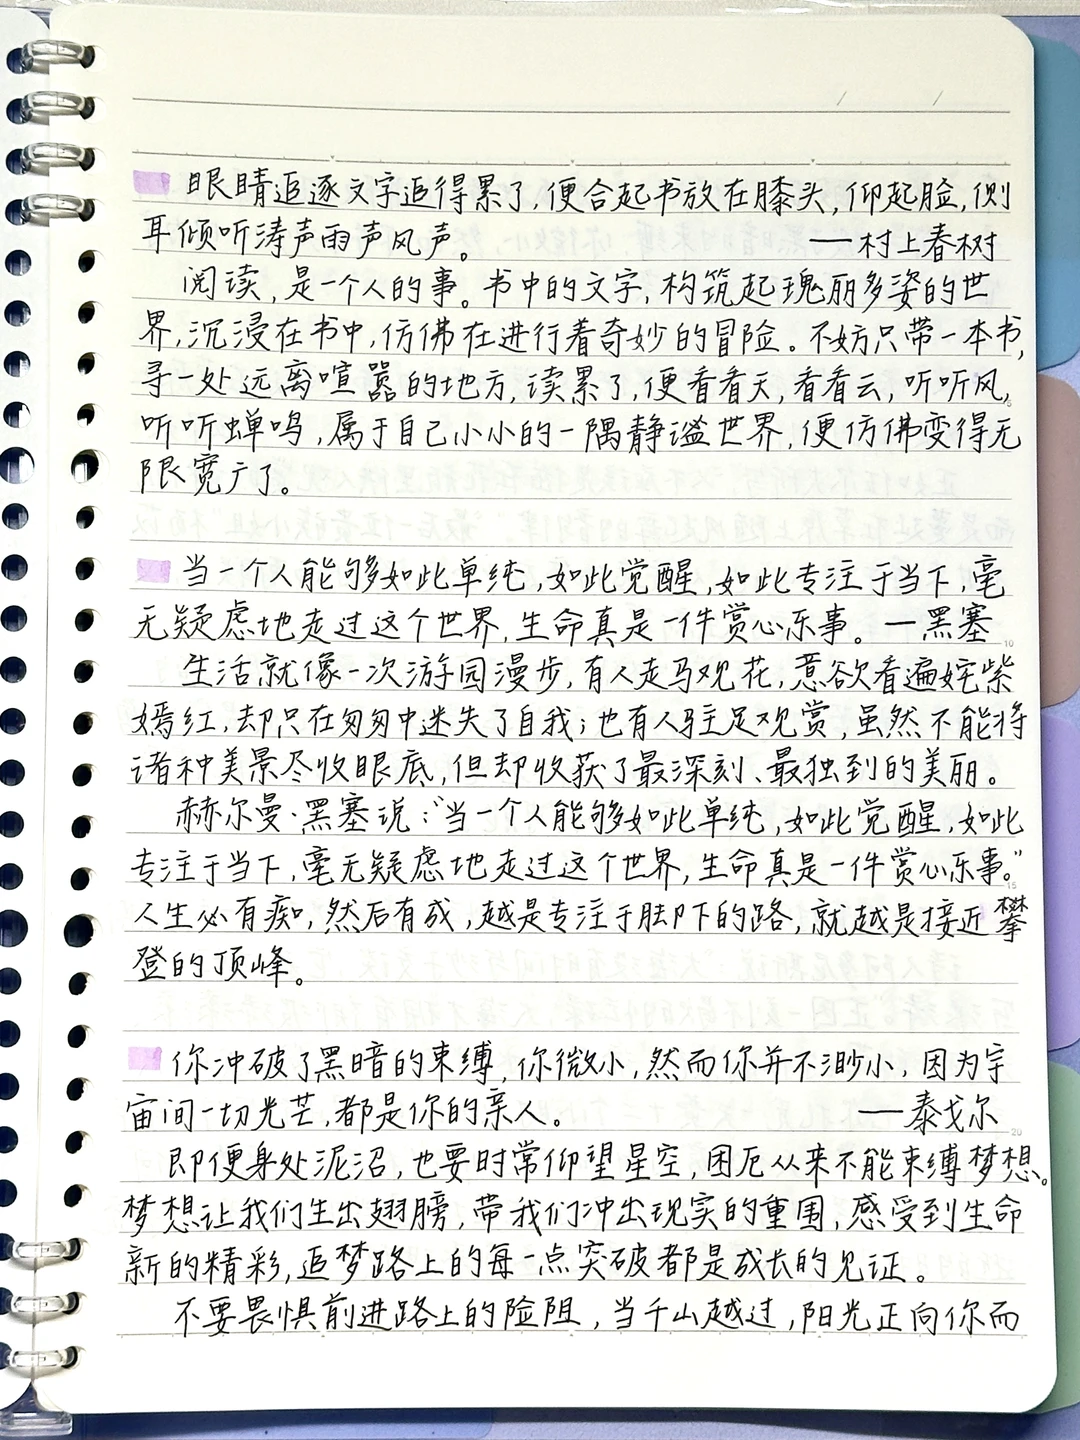 眼睛追逐文字追得累了,便合起书放在膝头,仰起脸,侧
耳倾听涛声雨声风声。 ——村上春树
阅读,是一个人的事。书中的文字,构筑起瑰丽多姿的世
界,沉浸在书中,仿佛在进行着奇妙的冒险。不妨只带一本书,
寻一处远离喧嚣的地方,读累了,便看看天,看看云,听听风,
听听蝉鸣,属于自己小小的一隅静谧世界,便仿佛变得无
限宽广了。
当一个人能够如此单纯,如此觉醒,如此专注于当下,毫
无疑虑地走过这个世界,生命真是一件赏心乐事。—黑塞
生活就像一次游园漫步,有人走马观花,意欲看遍姹紫
嫣红,却只在匆匆中迷失了自我;也有人驻足观赏,虽然不能将
诸种美景尽收眼底,但却收获了最深刻、最独到的美丽。
赫尔曼·黑塞说:“当一个人能够如此单纯,如此觉醒,如此
专注于当下,毫无疑虑地走过这个世界,生命真是一件赏心乐事。”
人生必有痴,然后有成,越是专注于脚下的路,就越是接近攀
登的顶峰。
你冲破了黑暗的束缚,你微小,然而你并不渺小,因为宇
宙间一切光芒,都是你的亲人。 ——泰戈尔
即便身处泥沼,也要时常仰望星空,困厄从来不能束缚梦想。
梦想让我们生出翅膀,带我们冲出现实的重围,感受到生命
新的精彩,追梦路上的每一点突破都是成长的见证。
不要畏惧前进路上的险阻,当千山越过,阳光正向你而